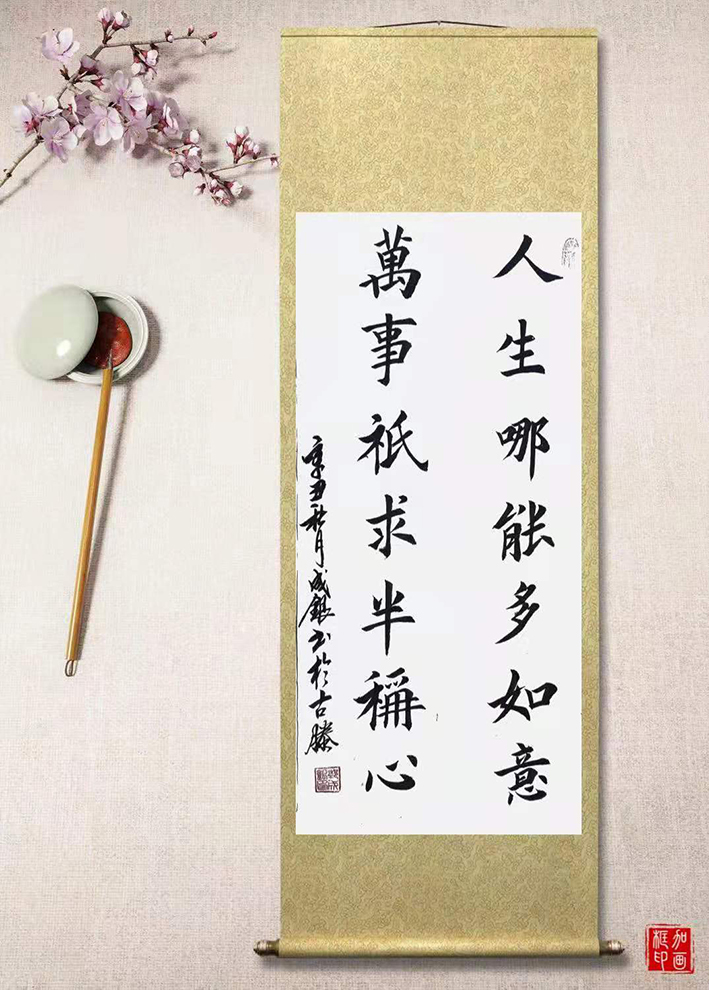 人生哪能多如意
萬事祇求半稱心
辛丑秋月成銀书於古滕
加画
框印